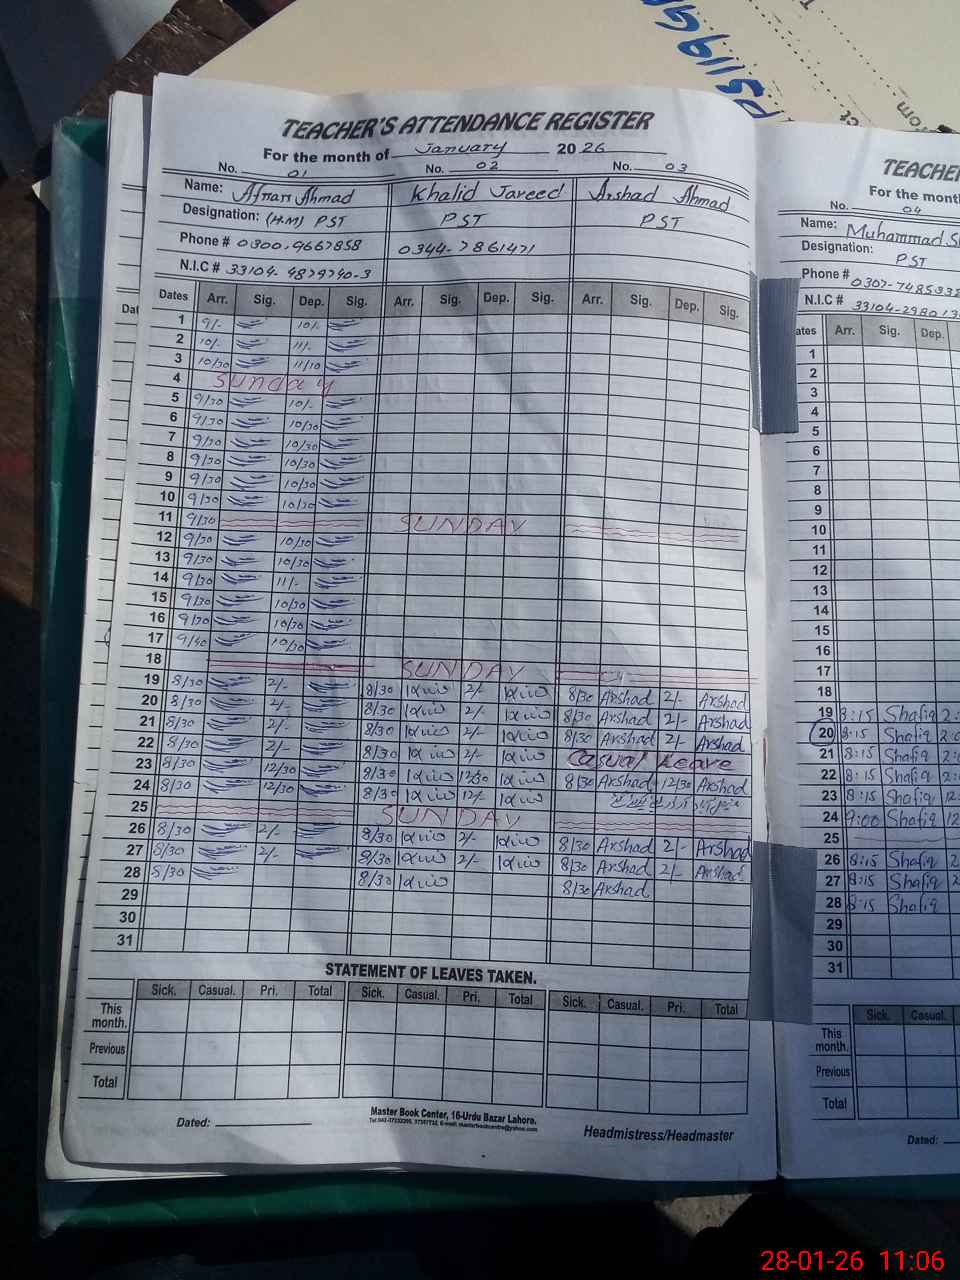 TEACHER'S ATTENDANCE REGISTER
For the month of January 2026
No. 01 No. 02 No. 03
Name: Ahmad Khalid Javeed Arshad Ahmad
Designation: (H.M) PST PST PST
Phone # 0300.9667858 0344-7861471
N.I.C # 33104-4879740-3
Dates Arr. Sig. Dep. Sig. Arr. Sig. Dep. Sig. Arr. Sig. Dep. Sig.
1 9/- 10/-
2 10/- 11/-
3 10/30 11/10
4 Sunday
5 9/30 10/-
6 9/30 10/30
7 9/30 10/30
8 9/30 10/30
9 9/30 10/30
10 9/30 10/30
11 9/30 SUNDAY
12 9/30 10/30
13 9/30 10/30
14 9/30 11/-
15 9/30 10/30
16 9/30 10/30
17 9/40 10/30
18 SUNDAY
19 8/30 2/- 8/30 2/- 8/30 Arshad 2/- Arshad
20 8/30 2/- 8/30 2/- 8/30 Arshad 2/- Arshad
21 8/30 2/- 8/30 2/- 8/30 Arshad 2/- Arshad
22 8/30 2/- 8/30 2/- Casual Leave
23 8/30 12/30 8/30 12/30 8/30 Arshad 12/30 Arshad
24 8/30 12/30 8/30 12/-
25 SUNDAY
26 8/30 2/- 8/30 2/- 8/30 Arshad 2/- Arshad
27 8/30 2/- 8/30 2/- 8/30 Arshad 2/- Arshad
28 8/30 8/30 8/30 Arshad
29
30
31
STATEMENT OF LEAVES TAKEN.
Sick. Casual. Pri. Total Sick. Casual. Pri. Total Sick. Casual. Pri. Total
This month.
Previous
Total
Dated:
Master Book Center, 16-Urdu Bazar Lahore.
Headmistress/Headmaster
TEACHE
For the month
No. 04
Name: Muhammad S
Designation: PST
Phone # 0307-748533
N.I.C # 33104-298013
ates Arr. Sig. Dep.
1
2
3
4
5
6
7
8
9
10
11
12
13
14
15
16
17
18
19 8:15 Shafiq 2:
20 8:15 Shafiq 2:
21 8:15 Shafiq 2:
22 8:15 Shafiq 2:
23 8:15 Shafiq 12:
24 9:00 Shafiq 12
25
26 8:15 Shafiq 2
27 8:15 Shafiq 2
28 8:15 Shafiq
29
30
31
Sick. Casual.
This month.
Previous
Total
Dated:
28-01-26 11:06